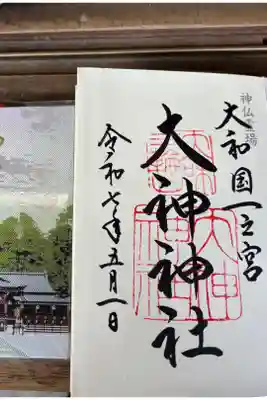 神仏霊場
大和国一之宮
大神神社
令和七年五月一日